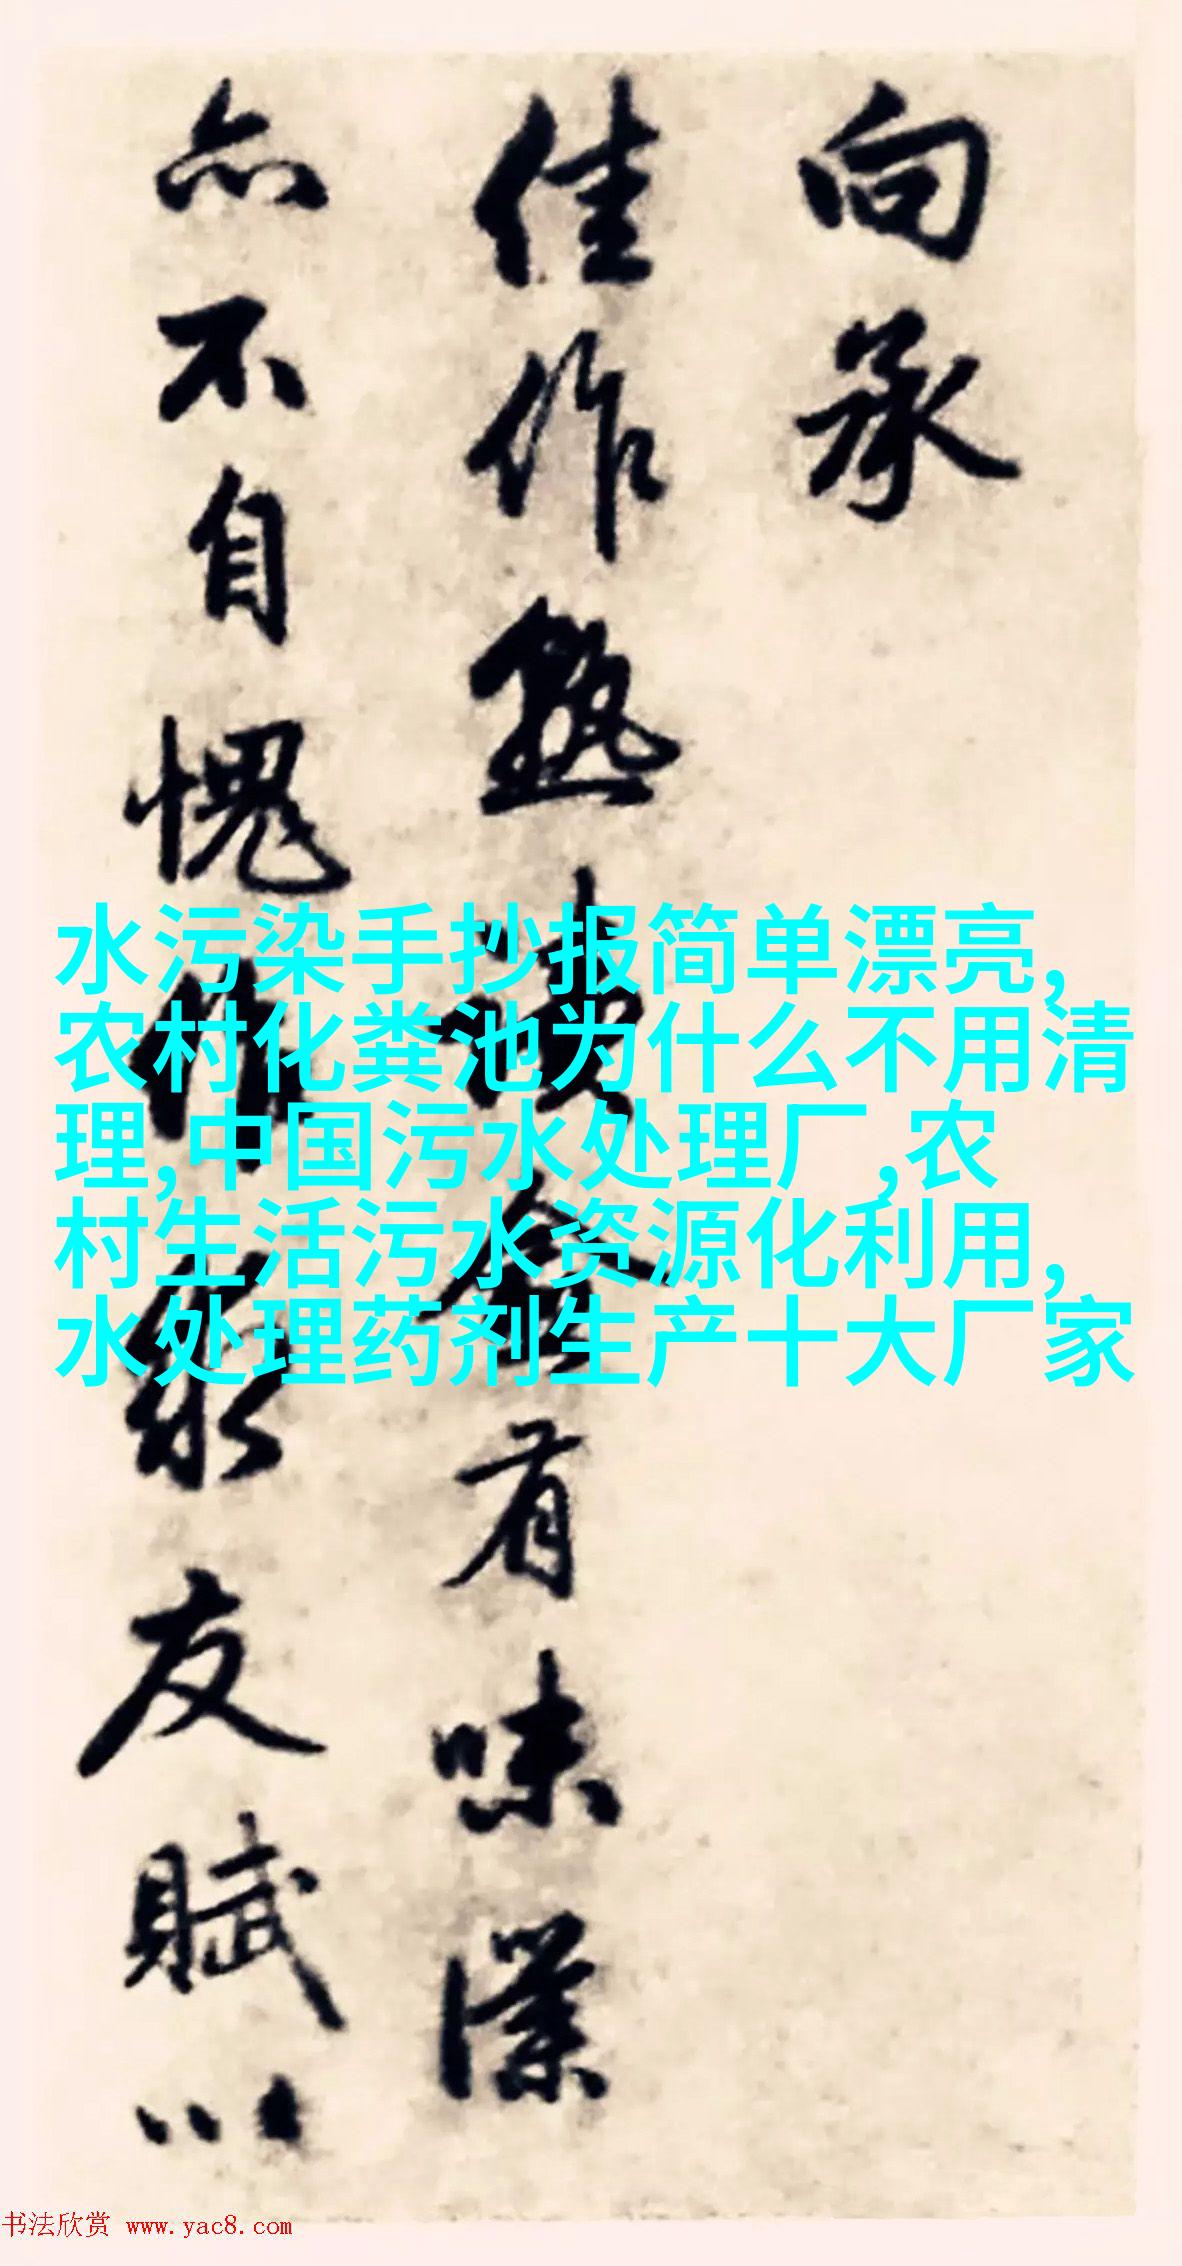 向承
佳作熟读有味
亦不自愧作友賦以
水污染手抄报简单漂亮,
农村化粪池为什么不用清
理,中国污水处理厂,农
村生活污水资源化利用,
水处理药剂生产十大厂家
书法欣赏 www.yac8.com